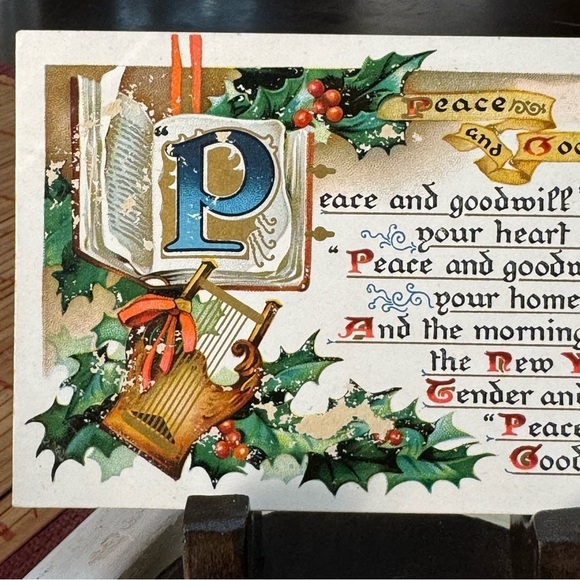 Peace
and Goo
"Peace and goodwill
your heart
"Peace and goodw
your home
And the morning
the New Y
Tender and
"Peace
Good